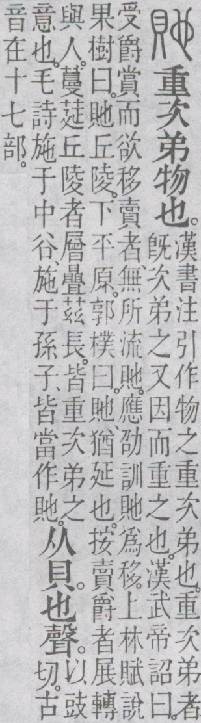 貤 重次弟物也。漢書注引作物之重次弟也。重次弟者
旣次弟之又因而重之也。漢武帝詔曰。
受爵賞而欲移賣者無所流貤。應劭訓貤爲移。上林賦說
果樹曰。貤丘陵。下平原。郭樸曰。貤猶延也。按賣爵者展轉
與人。蔓莚丘陵者層疊茲長。皆重次弟之
意也。毛詩施于中谷、施于孫子、皆當作貤。从貝。也聲。以豉
切。古
音在十七部。